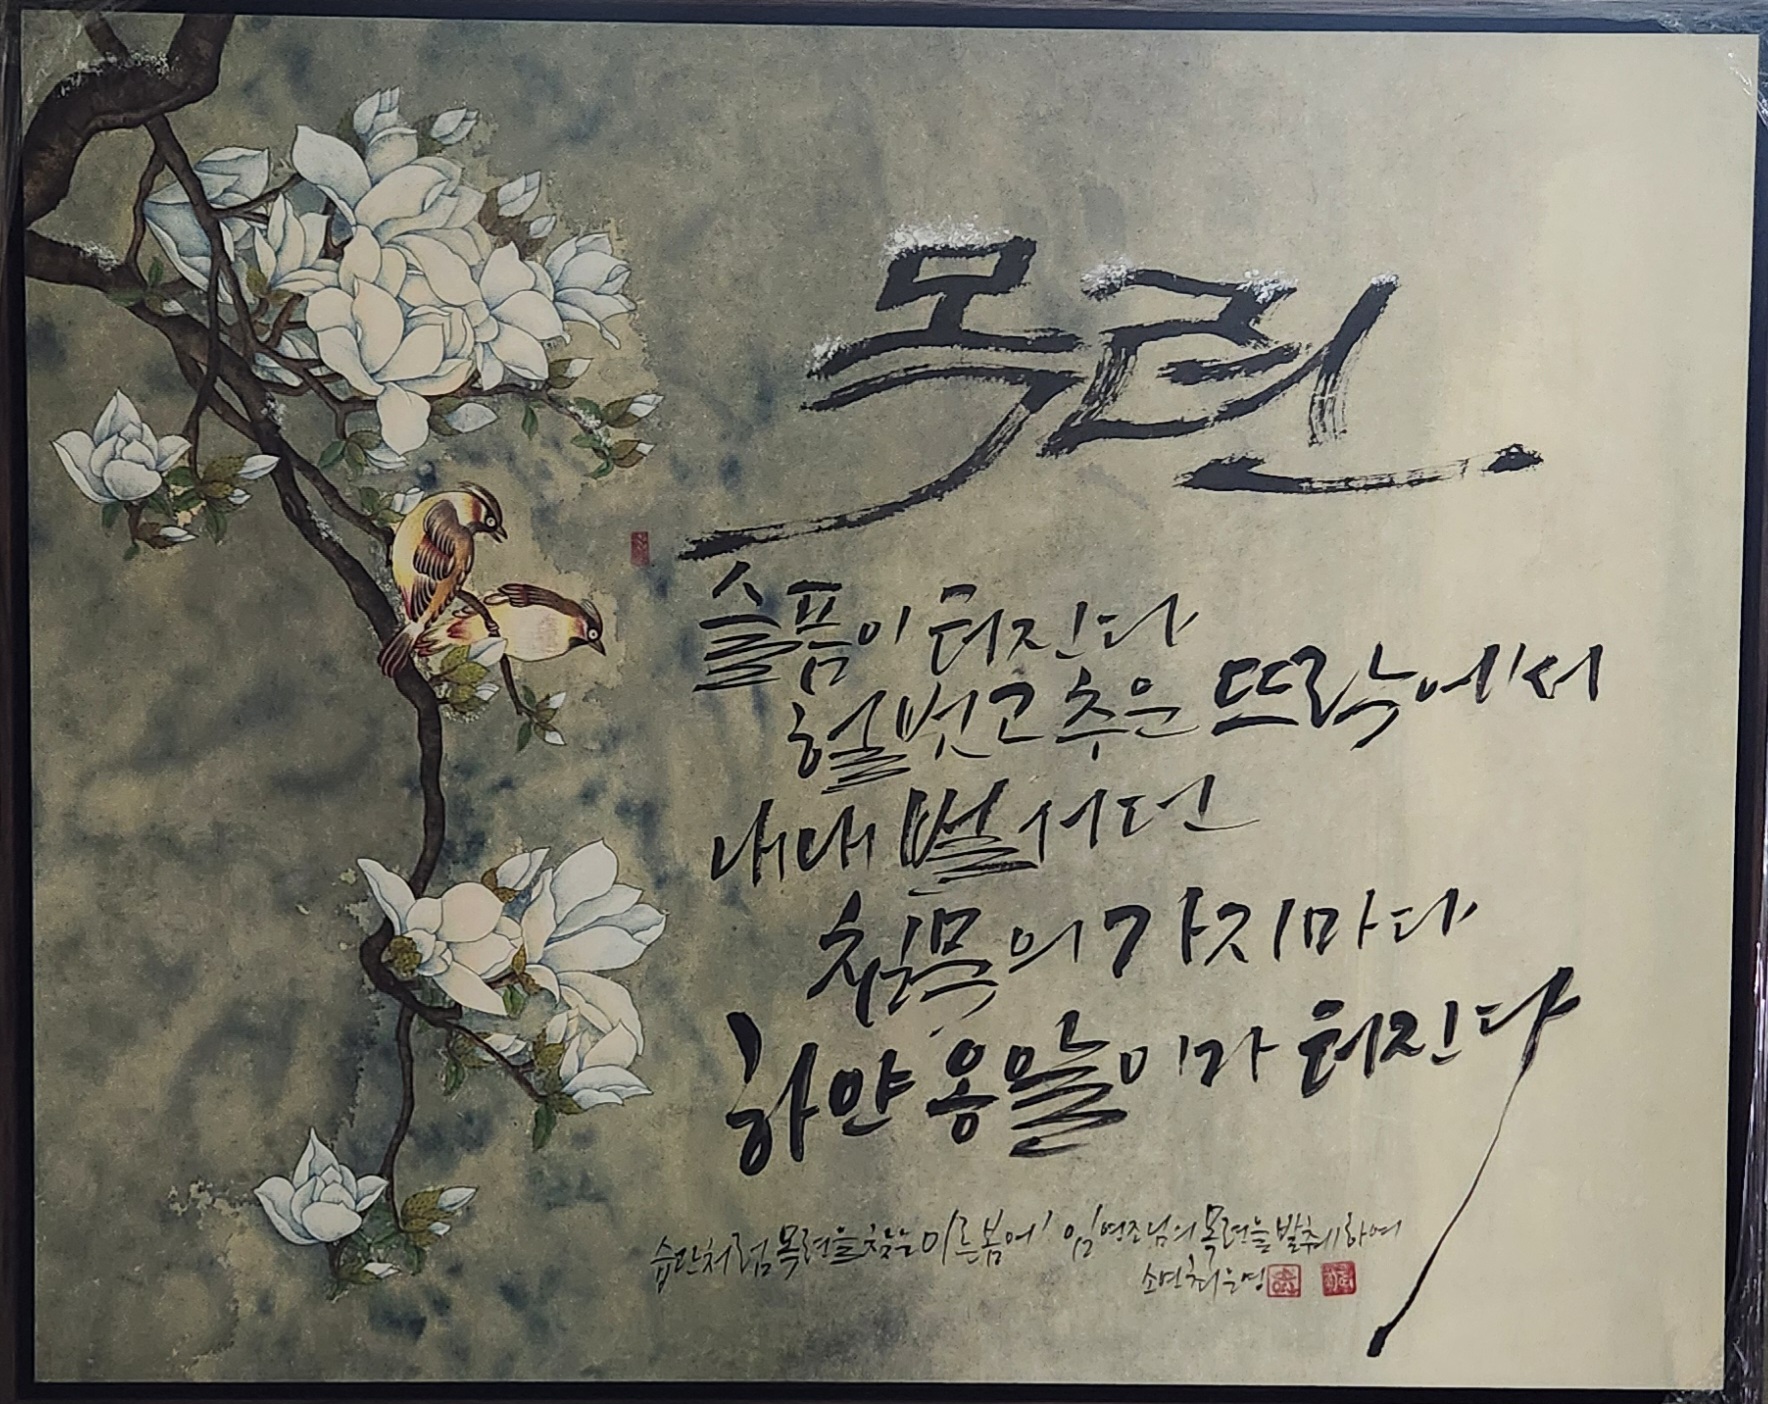 목련
슬픔이 터진다
헐벗고 추운 뜨락에서
내내 벌서던
침묵의 가지마다
하얀 옹알이가 터진다
습관처럼 목련을 찾는 이른 봄에 임연조님의 목련을 발췌하여
소연 최은영